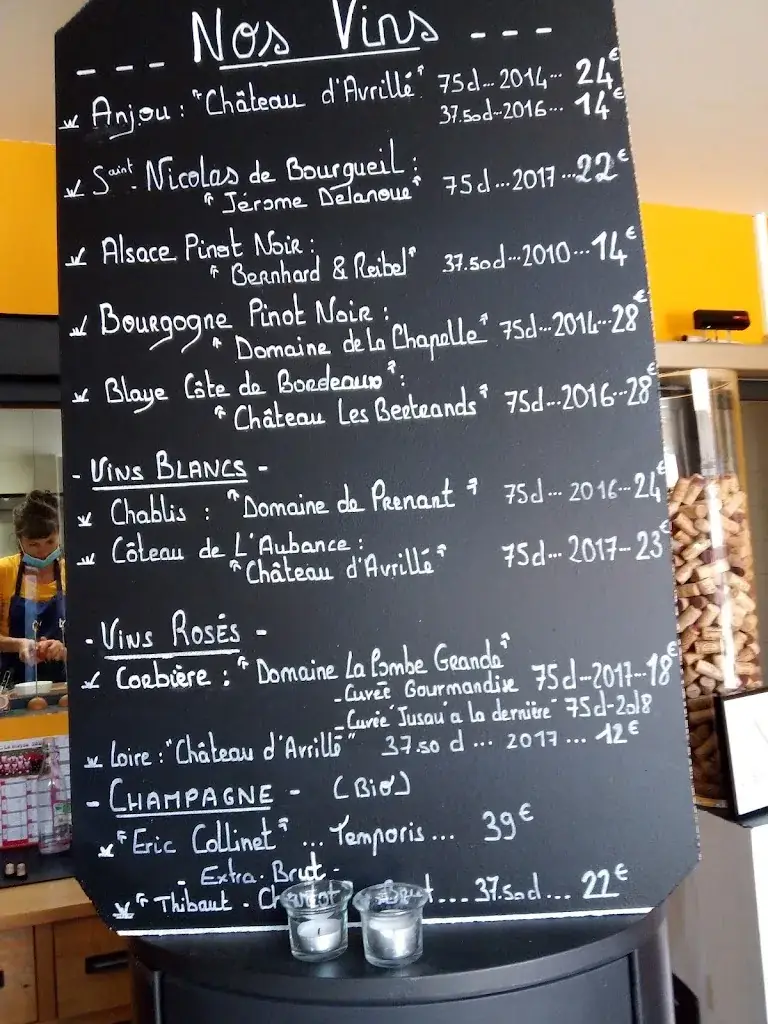 --- Nos Vins ---
Anjou : "Château d'Avrillé" 75cl...2014... 24€
37.50cl...2016... 14€
Saint. Nicolas de Bourgueil :
"Jérome Delanoue" 75cl...2017...22€
Alsace Pinot Noir :
"Bernhard & Reibel" 37.50cl...2010...14€
Bourgogne Pinot Noir :
"Domaine de la Chapelle" 75cl...2014...28€
Blaye Côte de Bordeaux" :
"Château Les Bertrands" 75cl...2016...28€
- Vins Blancs -
Chablis : "Domaine de Prenant" 75cl... 2016...24€
Côteau de L'Aubance :
"Château d'Avrillé" 75cl... 2017-- 23€
- Vins Rosés -
Corbière : "Domaine La Combe Grande"
-Cuvée Gourmandise 75cl--2017--18€
-Cuvée "Jusqu'a la dernière" 75cl-2018
Loire : "Château d'Avrillé" 37.50 cl ... 2017 ... 12€
- Champagne - (Bio)
"Eric Collinet" ... Temporis ... 39€
- Extra-Brut -
"Thibaut - ... 37.50cl... 22€